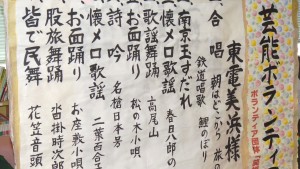 芸能ボランティア
ボランティア団体
東電美浜様
合唱 朝はどこから 旅の
鉄道唱歌 鯉のぼり
南京玉すだれ
懐メロ歌謡 春日八郎の
歌謡舞踊 高尾山
お面踊り 松の木小唄
詩吟 名槍日本号
懐メロ歌謡 二葉百合子
お面踊り お座敷小唄
股旅舞踊 沓掛時次郎
皆で民舞 花笠音頭